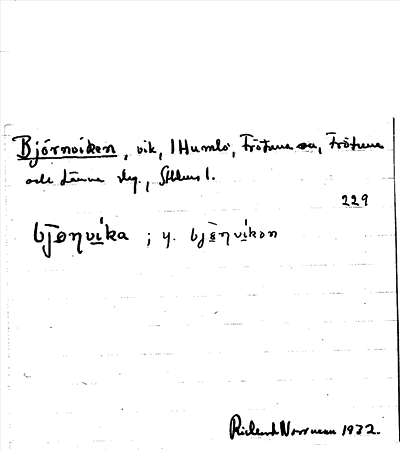 Björnviken, vik, 1 Humlö, Frötuna sn, Frötuna
och Länna skg., Sthlms l.
229
bjønvika ; y. bjønvikən
Richard Norrman 1932.